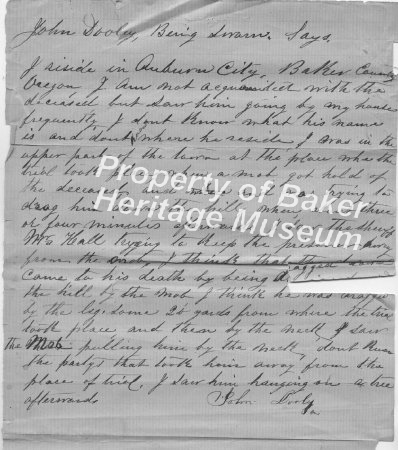 John Dooly, Being Sworn. Says.
I reside in Auburn City, Baker County
Oregon, I Am not acquainted with the
deceased but saw him going by my house
frequently I dont know what his name
is and dont where he resides, I was in the
upper part of the town at the place whare the
trial took place a mob got hold of
the deceased and trying to
drag him the hill, three
or four minutes the Sherif
Mr Hall trying to keep the away
from the mob, I think that the
come to his death by being dragged
the hill by the Mob I think he was dragged
by the leg some 25 yards from where the trial
took place and then by the neck I saw
the Mob pulling him by the neck, dont know
the partys that took him away from the
place of trial, I saw him hanging on a tree
afterwards John Dooly
Property of Baker
Heritage Museum